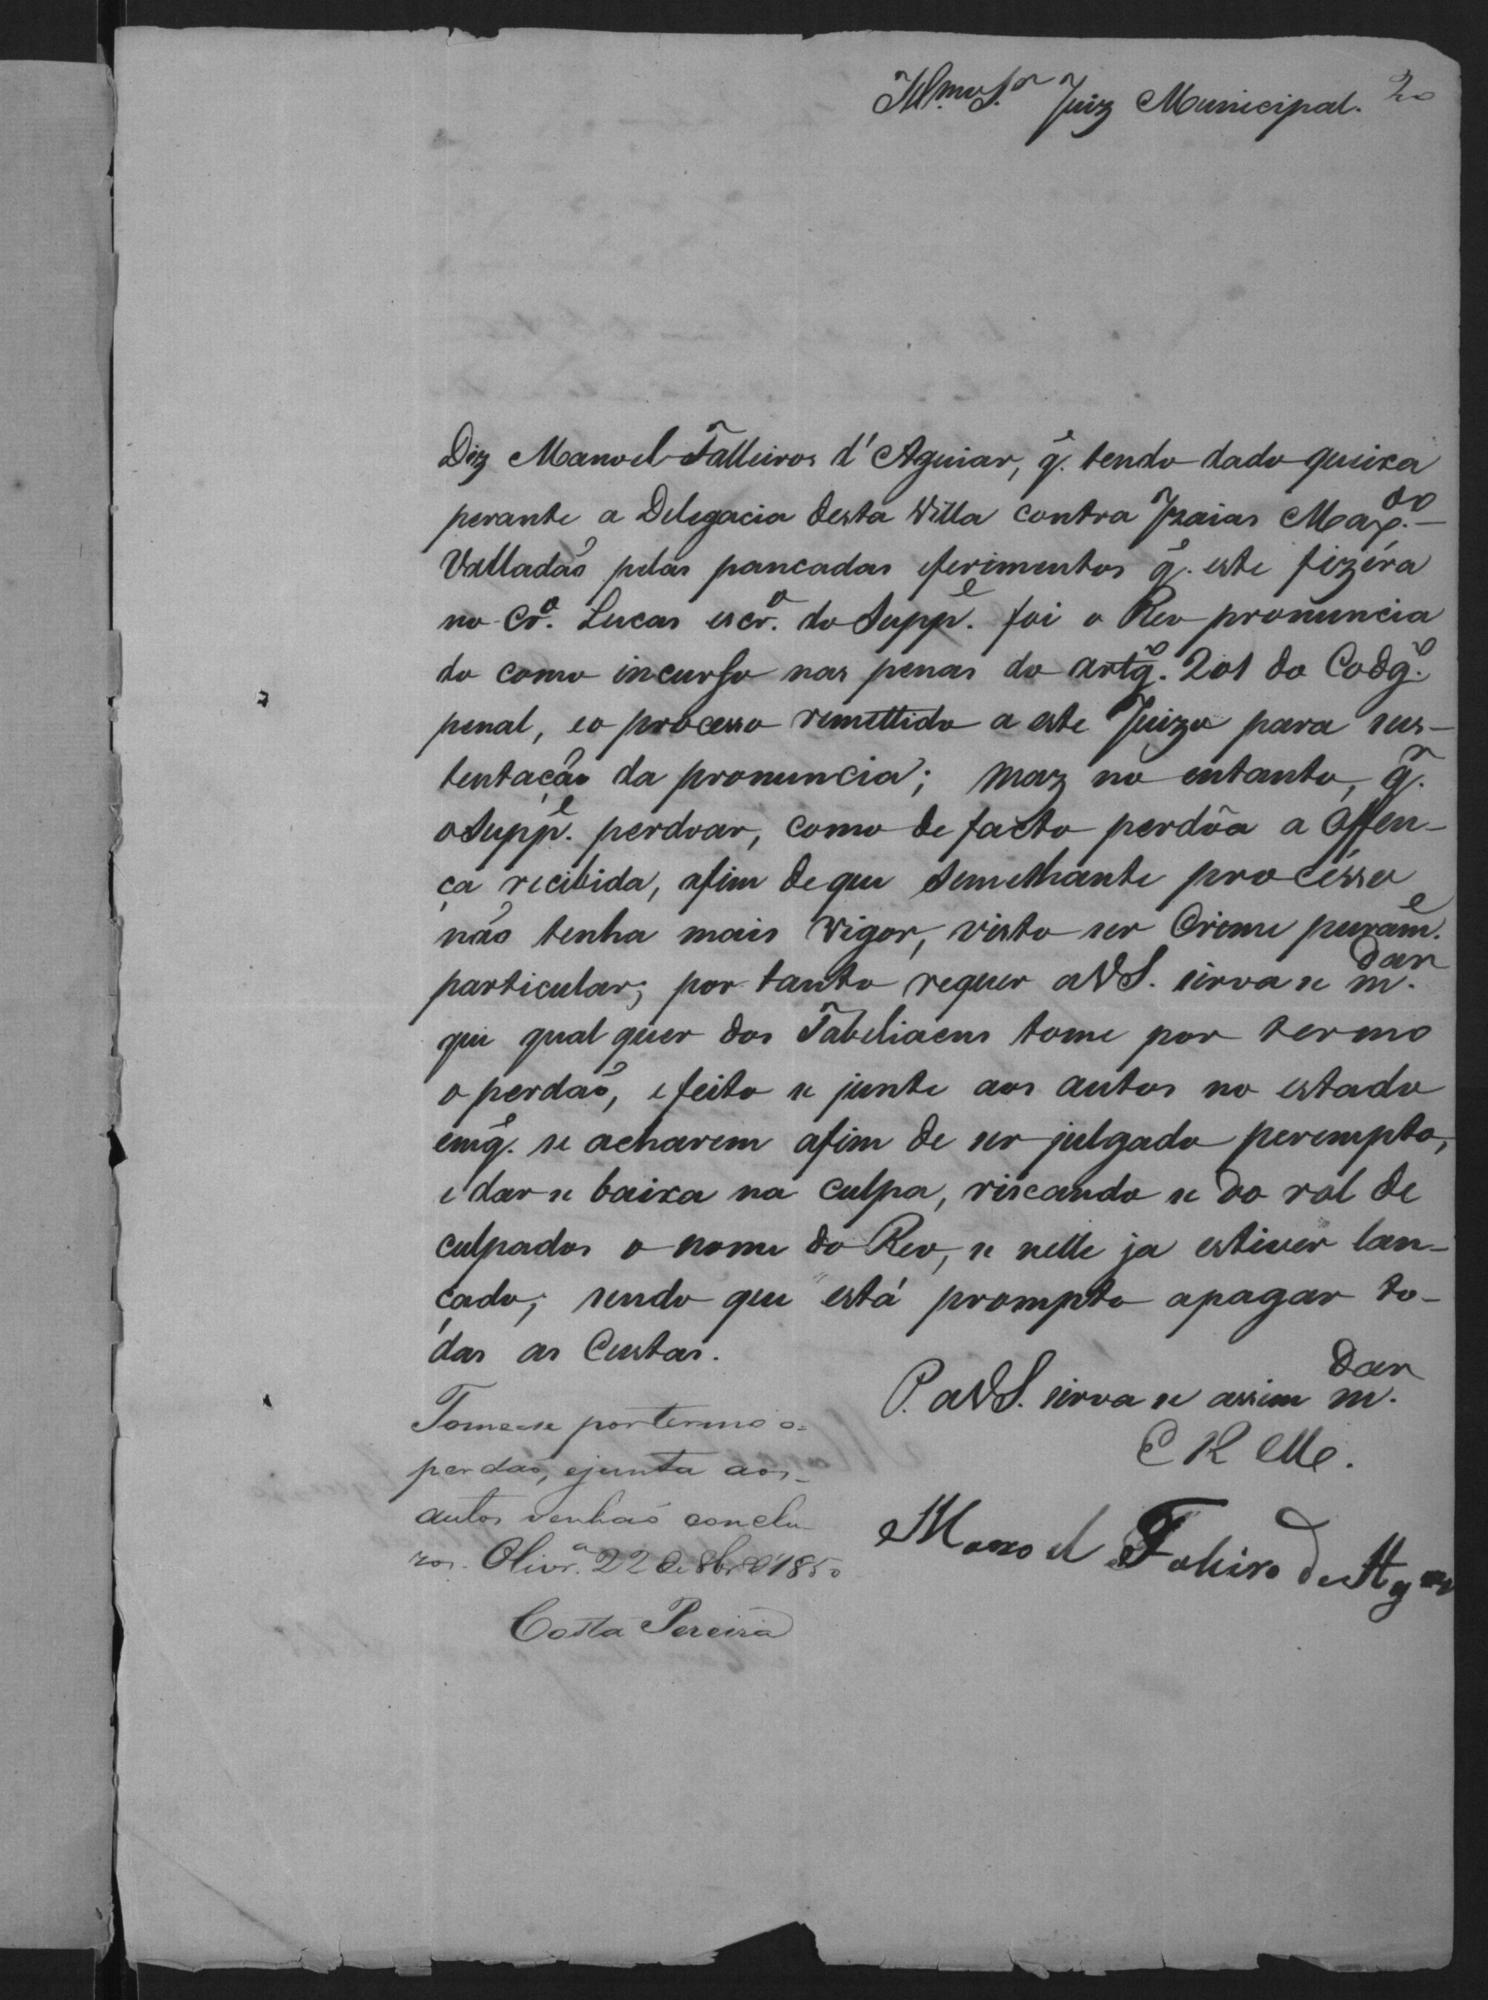 Illmo Sr. Juiz Municipal. 20
Diz Manoel Falleiros d'Aguiar, q.e tendo dado queixa
perante a Delegacia desta Villa contra Izaias Maxdo.
Valladaõ pelas pancadas eferimentos q.e este fizéra
no Cro. Lucas escro. do Suppe. foi o Reo pronuncia
do como incurso nas penas do artgo. 201 do Codgo.
penal, eo processo remettido a este Juizo para sus-
tentação da pronuncia; maz no entanto, qr.
o Suppe. perdoar, como de facto perdôa a Offen-
ça recibida, afim deque semelhante procésso
naõ tenha mais vigor, visto ser Crime purame.
particular; por tanto requer aVS. sirva se mdar.
que qual quer dos Tabeliaens tome por termo
o perdaõ, efeito se junte aos autos no estado
emqe. se acharem afim de ser julgado perempto,
e dar se baixa na culpa, riscando se do rol de
culpados o nome do Reo, se nelle ja estiver lan-
çado; sendo que está prompto apagar to-
das as Custas.
P. aVS. sirva se assim mdar.
E R Mce.
Manoel Faleiro de Agar
Tome-se portermo o-
perdaõ, ejunta aos-
autos venhaõ conclu
zos. Olivra. 22 de 8br.o d'1850
Costa Pereira